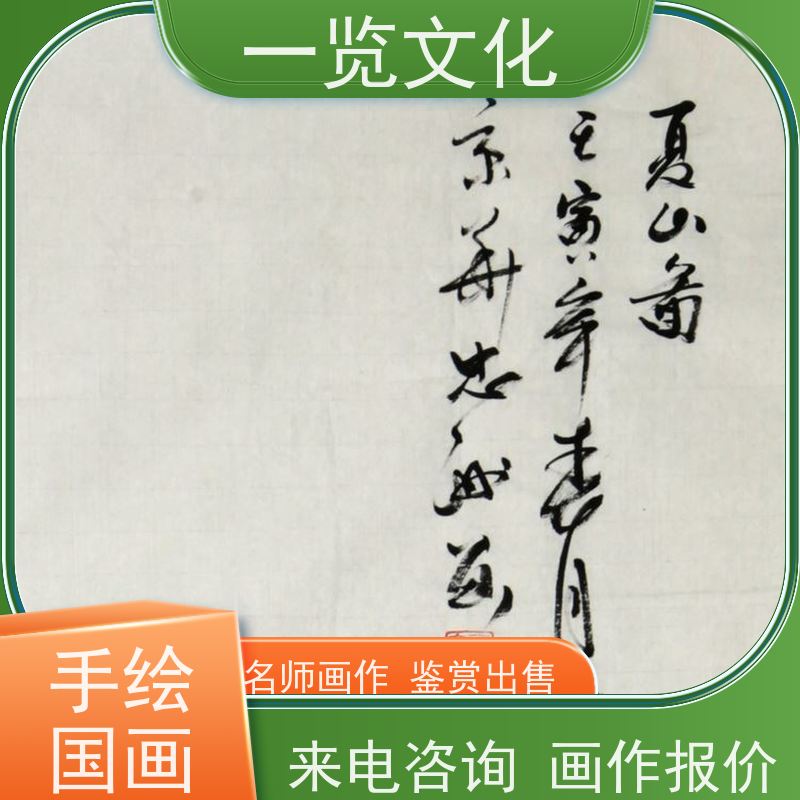 一览文化
夏山图
壬寅年春月
京華忠
手绘
国画
名师画作 鉴赏出售
来电咨询 画作报价